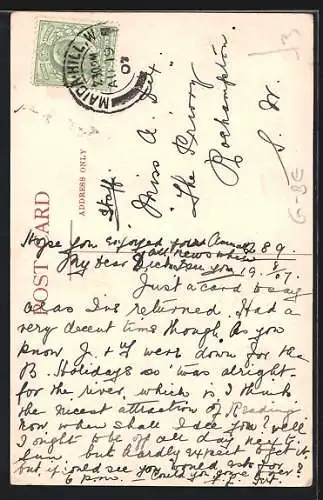 MAIDA HILL. W
7.30 PM
AU 19
07
POST CARD
ADDRESS ONLY
Staff.
Miss A. Fox
"The Priory
Roehampton.
S. W.
Hope you enjoyed your
all news when
My dear see you 19. 8. 07.
Just a card to say
as has returned. Had a
very decent time though. As you
know, J. & were down for the
B. Holidays so was alright
for the river, which is I think
the nicest attraction of Reading
Now, when shall I see you? Well
I ought to be off all day next
but hardly expect to get it.
but if could see you would ask for
6 p.m. Could you come over?